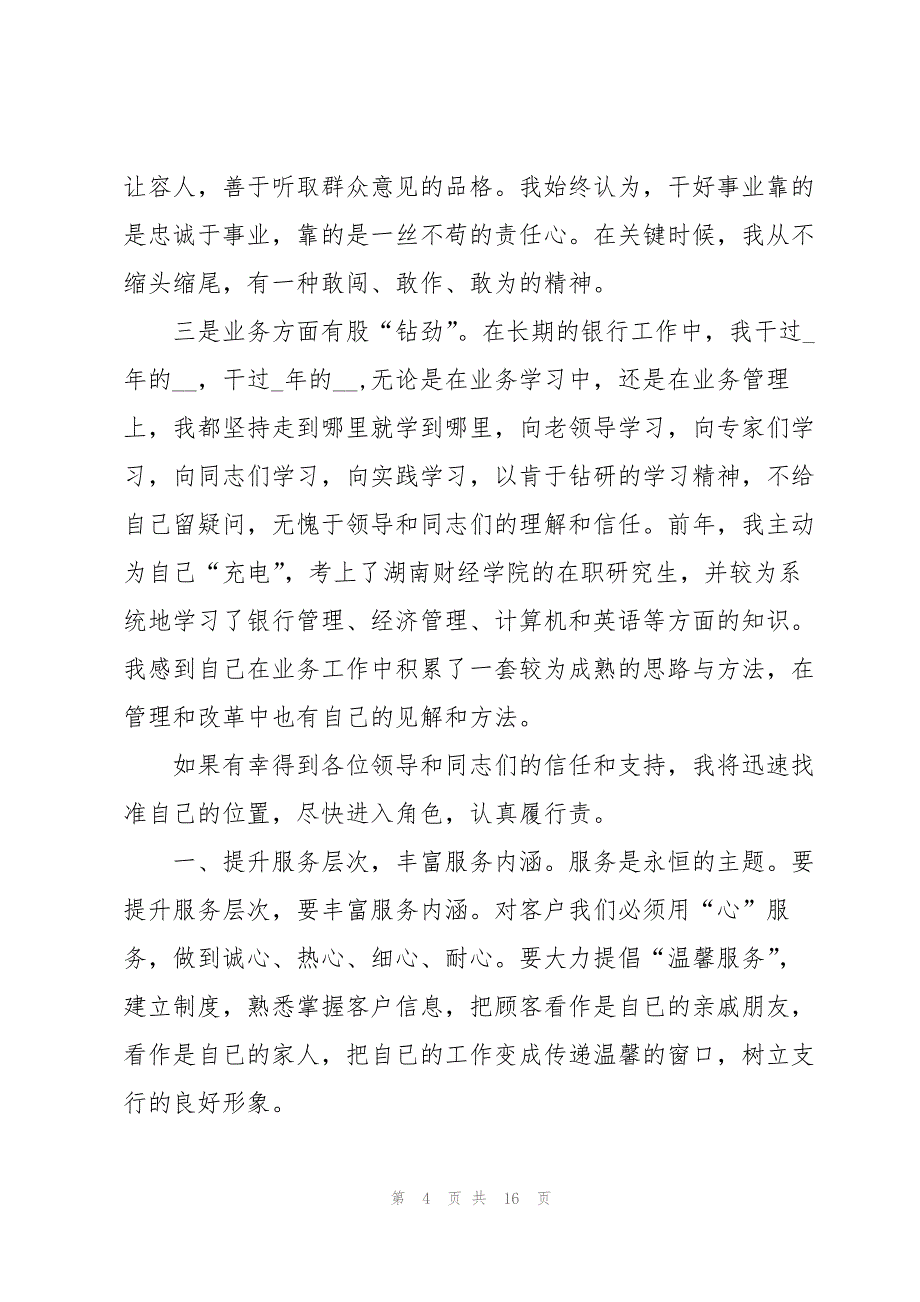 让容人，善于听取群众意见的品格。我始终认为，干好事业靠的
是忠诚于事业，靠的是一丝不苟的责任心。在关键时候，我从不
缩头缩尾，有一种敢闯、敢作、敢为的精神。
三是业务方面有股“钻劲”。在长期的银行工作中，我干过_
年的__，干过_年的__,无论是在业务学习中，还是在业务管理
上，我都坚持走到哪里就学到哪里，向老领导学习，向专家们学
习，向同志们学习，向实践学习，以肯于钻研的学习精神，不给
自己留疑问，无愧于领导和同志们的理解和信任。前年，我主动
为自己“充电”，考上了湖南财经学院的在职研究生，并较为系
统地学习了银行管理、经济管理、计算机和英语等方面的知识。
我感到自己在业务工作中积累了一套较为成熟的思路与方法，在
管理和改革中也有自己的见解和方法。
如果有幸得到各位领导和同志们的信任和支持，我将迅速找
准自己的位置，尽快进入角色，认真履行责。
一、提升服务层次，丰富服务内涵。服务是永恒的主题。要
提升服务层次，要丰富服务内涵。对客户我们必须用“心”服
务，做到诚心、热心、细心、耐心。要大力提倡“温馨服务”，
建立制度，熟悉掌握客户信息，把顾客看作是自已的亲戚朋友，
看作是自已的家人，把自已的工作变成传递温馨的窗口，树立支
行的良好形象。
第 4 页 共 16 页